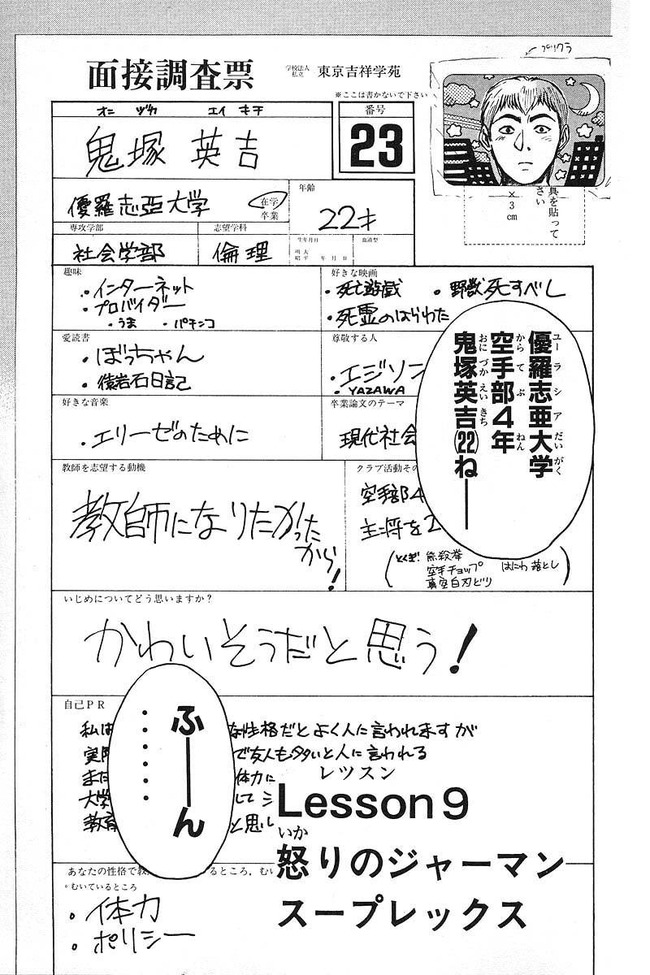 プリクラ
面接調査票
学校法人 私立 東京吉祥学苑
※ここは書かないで下さい
オニ ヅカ エイ キチ
鬼塚 英吉
番号
23
優羅志亜大学
在学
卒業
年齢
22才
専攻学部
社会学部
志望学科
倫理
生年月日
年 月 日
血液型
真を貼って
さい
×3cm
趣味
・インターネット
・プロバイダー
・うま ・パチンコ
好きな映画
・死亡遊戯 ・野獣死すべし
・死霊のはらわた
愛読書
・ぼっちゃん
・猿岩石日記
尊敬する人
・エジソン
・YAZAWA
好きな音楽
・エリーゼのために
卒業論文のテーマ
現代社会
優羅志亜大学
ユーラシアだいがく
空手部4年
からてぶ ねん
鬼塚英吉(22)ねーー
おにづかえいきち
教師を志望する動機
教師になりたかったから!
クラブ活動その
空手部4
主将を2
(とくぎ: 無殺拳 はにわ落とし
空手チョップ
真空白刃どり)
いじめについてどう思いますか?
かわいそうだと思う!
自己PR
私は
な性格だとよく人に言われますが
実際
で友人も多いと人に言われる
また
体力に
大学
して
教育
と思い
ふーーん
・・・・・・
レッスン
Lesson9
いか
怒りのジャーマン
スープレックス
あなたの性格で教
いるところ,むい
・むいているところ
・体力
・ポリシー